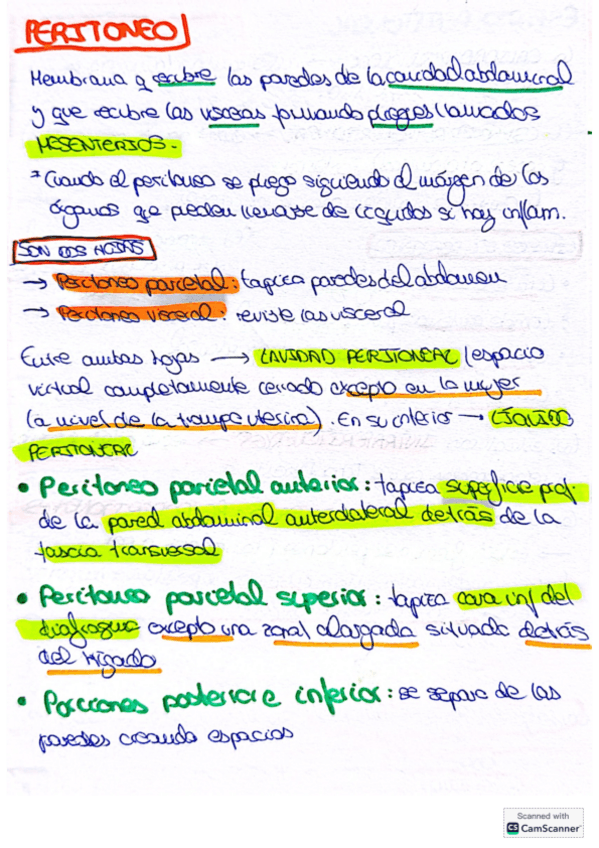 PERITONEO
Membrana q recubre las paredes de la cavidad abdominal
y que recubre las vísceras formando pliegues llamados
MESENTERIOS.
* Cuando el peritoneo se pliega siguiendo el márgen de los
órganos que pueden llenarse de líquidos si hay inflam.
SON DOS HOJAS
→ Peritoneo parietal: tapiza paredes del abdomen
→ Peritoneo visceral: reviste las visceral
Entre ambas hojas → CAVIDAD PERITONEAL (espacio
virtual completamente cerrado excepto en la mujer
(a nivel de la trompa uterina). En su interior → LÍQUIDO
PERITONEAL
• Peritoneo parietal anterior: tapiza superficie prof.
de la pared abdominal anterolateral detrás de la
fascia transversal
• Peritoneo parietal superior: tapiza cara inf del
diafragma excepto una zona alargada situada detrás
del hígado
• Porciones posterior e inferior: se separa de las
paredes creando espacios
Scanned with
CS CamScanner